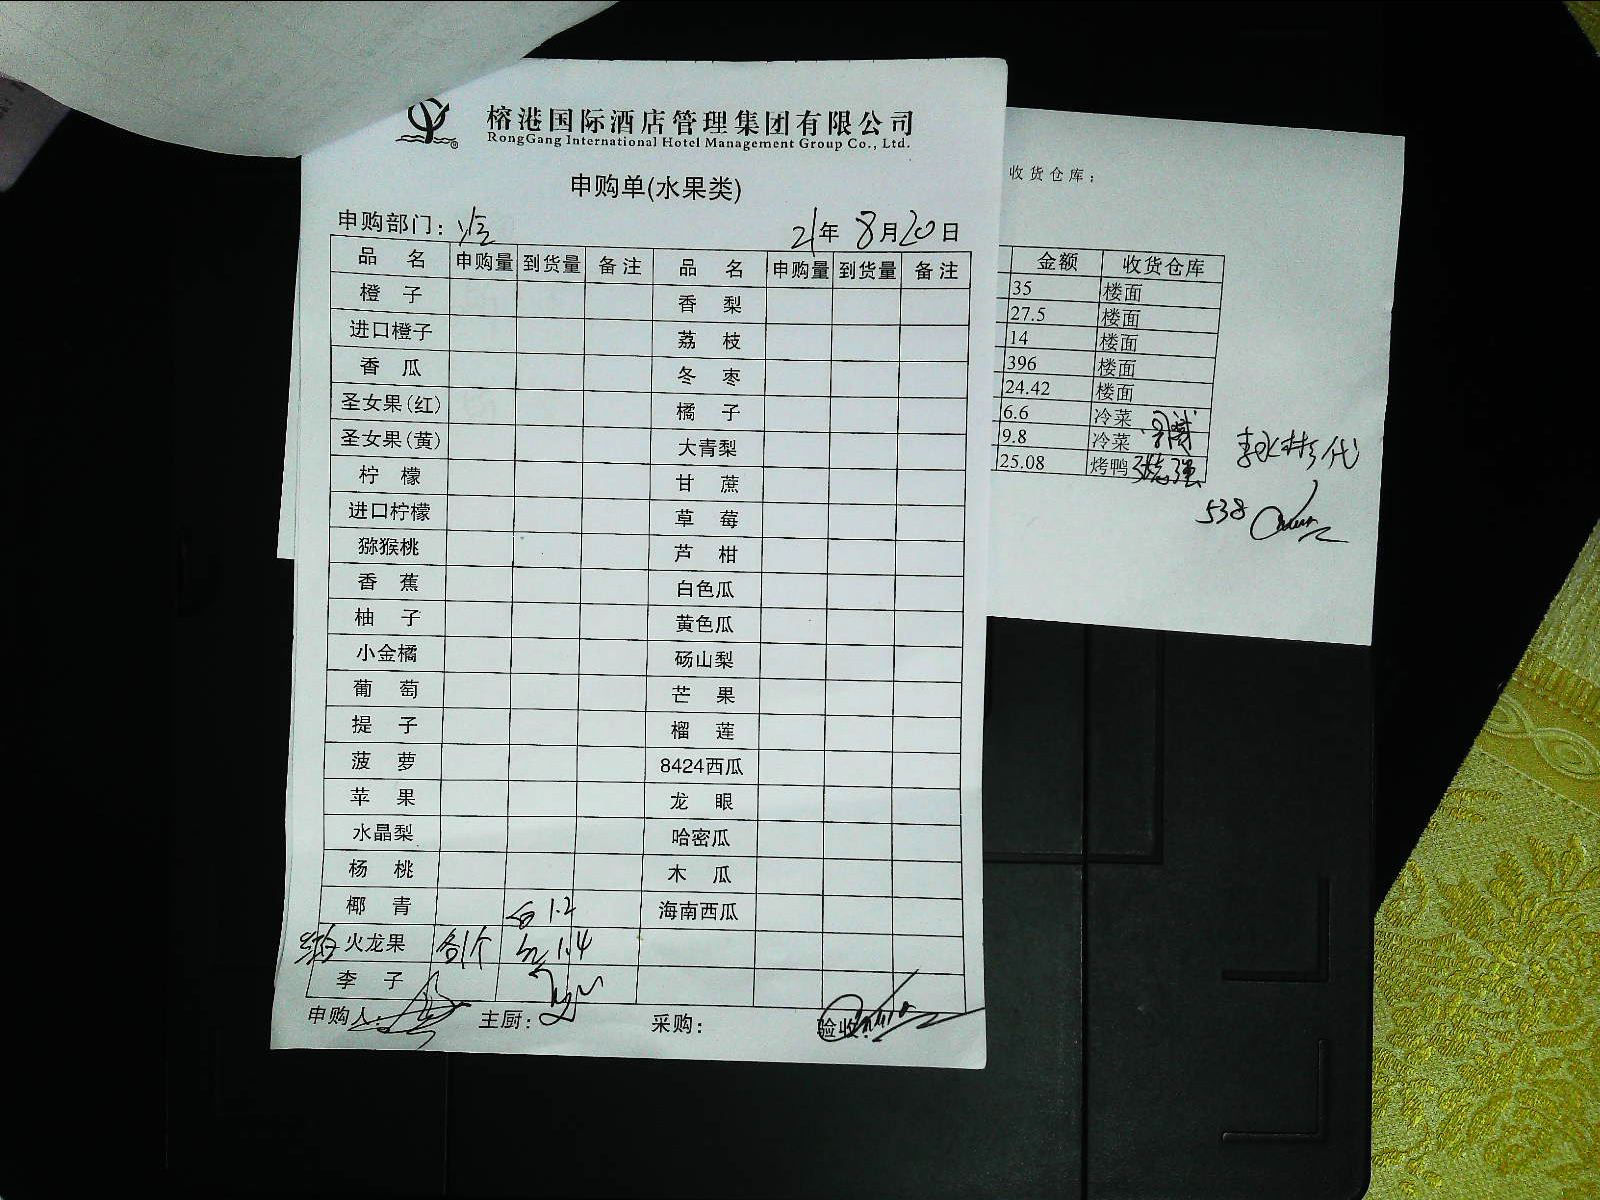 榕港国际酒店管理集团有限公司
RongGang International Hotel Management Group Co., Ltd.
申购单(水果类)
申购部门： 21年 8月20日
品 名 申购量 到货量 备注 品 名 申购量 到货量 备注
橙 子 香 梨
进口橙子 荔 枝
香 瓜 冬 枣
圣女果(红) 橘 子
圣女果(黄) 大青梨
柠 檬 甘 蔗
进口柠檬 草 莓
猕猴桃 芦 柑
香 蕉 白色瓜
柚 子 黄色瓜
小金橘 砀山梨
葡 萄 芒 果
提 子 榴 莲
菠 萝 8424西瓜
苹 果 龙 眼
水晶梨 哈密瓜
杨 桃 木 瓜
椰 青 白 1.2 海南西瓜
红白 火龙果 各1个 红 1.4
李 子
申购人： 主厨： 采购： 验收：
收货仓库：
金额 收货仓库
35 楼面
27.5 楼面
14 楼面
396 楼面
24.42 楼面
6.6 冷菜
9.8 冷菜
25.08 烤鸭
538